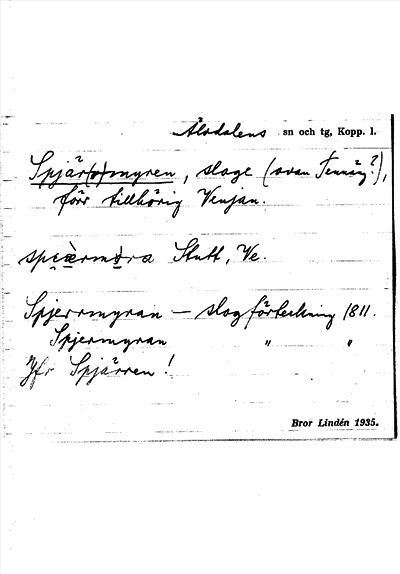 Älvdalens sn och tg, Kopp. l.
Spjär(r)myren, sloge (ovan Tennäng?),
förr tillhörig Venjan.
Slutt, Ve.
Spjerrmyran — slogförteckning 1811.
Spjermyran " "
Jfr Spjärren!
Bror Lindén 1935.